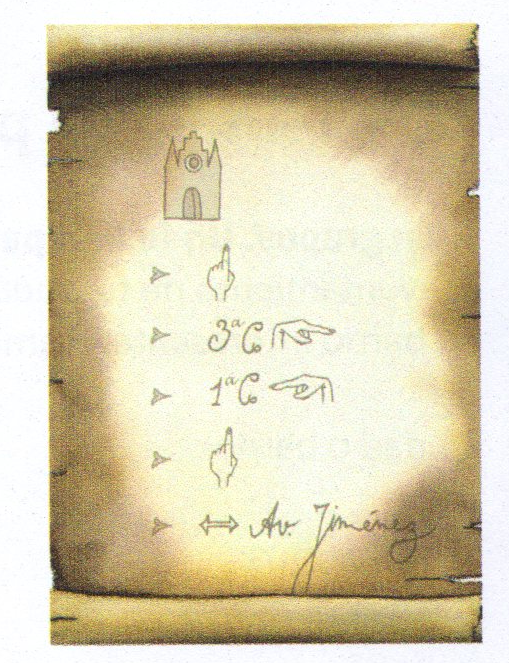 3ªC
1ªC
Av. Jiménez